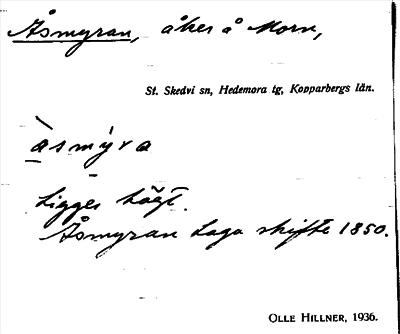 Åsmyran, åker å Morn,
St. Skedvi sn, Hedemora tg, Kopparbergs län.
àsmýra
Ligger högt.
Åsmyran Laga skifte 1850.
OLLE HILLNER, 1936.